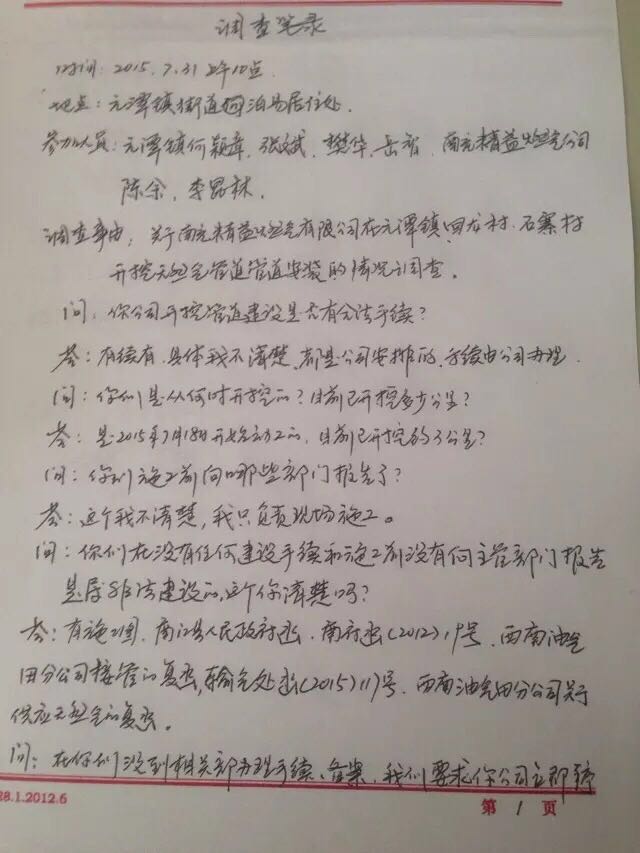 调查笔录
时间：2015.7.31上午10点.
地点：元潭镇街道 居住处.
参加人员：元潭镇何颖章、张斌、樊华、岳 、南充精益燃气公司
陈余、李昆林.
调查事由：关于南充精益燃气有限公司在元潭镇回龙村、石寨村
开挖天然气管道管道安装的情况调查。
问：你公司开挖管道建设是否有合法手续？
答：有续有、具体我不清楚、都是公司安排的、手续由公司办理.
问：你们是从何时开挖的？目前已开挖多少公里？
答：是2015年7月18日开始动工的，目前已开挖约3公里？
问：你们施工前向哪些部门报告了？
答：这个我不清楚，我只负责现场施工。
问：你们在没有任何建设手续和施工前没有向主管部门报告
是属非法建设的，这个你清楚吗？
答：有施工图、南江县人民政府函、南府函(2012)19号、西南油气
田分公司接管的复函，输气处函(2015)117号、西南油气田分公司关于
供应天然气的复函。
问：在你们没到相关部办理手续、备案，我们要求你公司立即停
28.1.2012.6
第 1 页